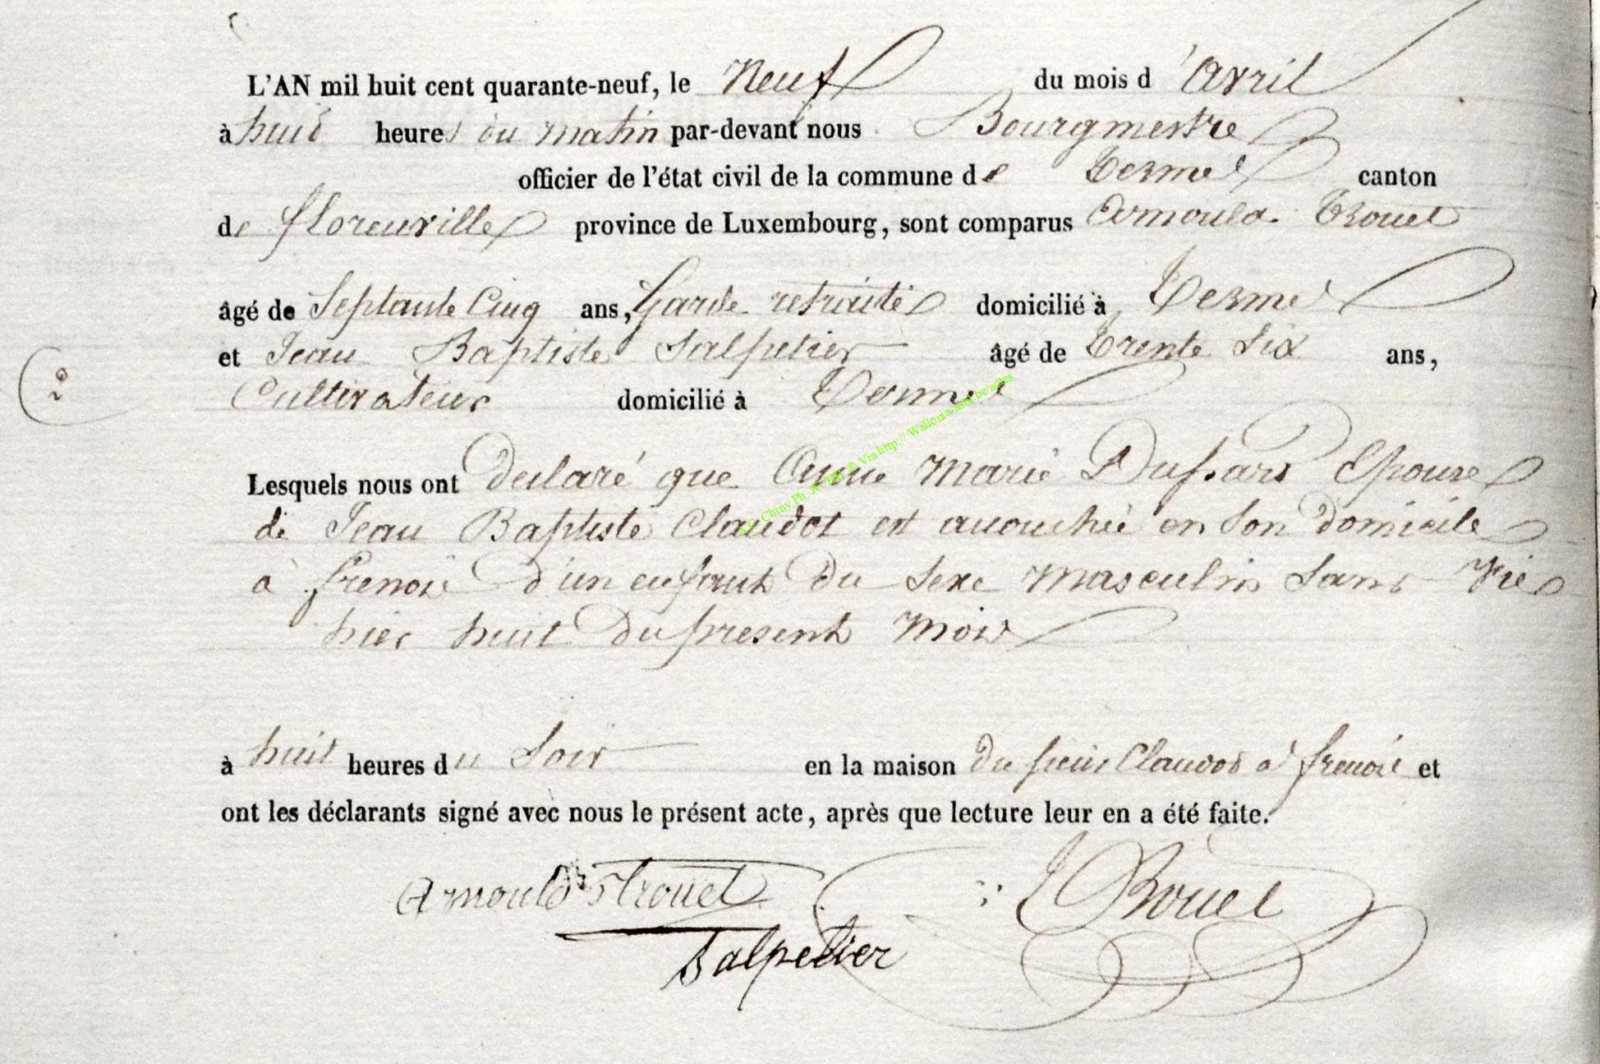 L'AN mil huit cent quarante-neuf, le neuf du mois d'avril
à huit heures du matin par-devant nous Bourgmestre
officier de l'état civil de la commune de Termes canton
de florenville province de Luxembourg, sont comparus Arnould Trouet
âgé de Septante Cinq ans, Garde retraité domicilié à Termes
et Jean Baptiste Salpetier âgé de Trente Six ans,
2°
Cultivateur domicilié à Termes
Lesquels nous ont declaré que Anne Marie Dufsart Epouse
de Jean Baptiste Claudot est accouchée en Son domicile
a frenois d'un enfant du Sexe masculin Sans Vie
hier huit du present mois
à huit heures du Soir en la maison du sieur Claudot à frenois et
ont les déclarants signé avec nous le présent acte, après que lecture leur en a été faite.
Arnould Trouet
Salpetier